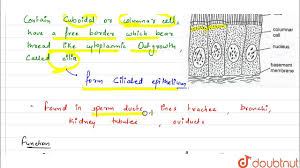 Contain Cuboidal or columnar cells,
have a free border which bear
thread like cytoplasmic Outgrowth,
Called cilia
form Ciliated epithelium
columnar
cell
nucleus
basement
membrane
* found in sperm ducts, lines trachea, bronchi,
kidney tubules, oviducts
Function
doubtnut